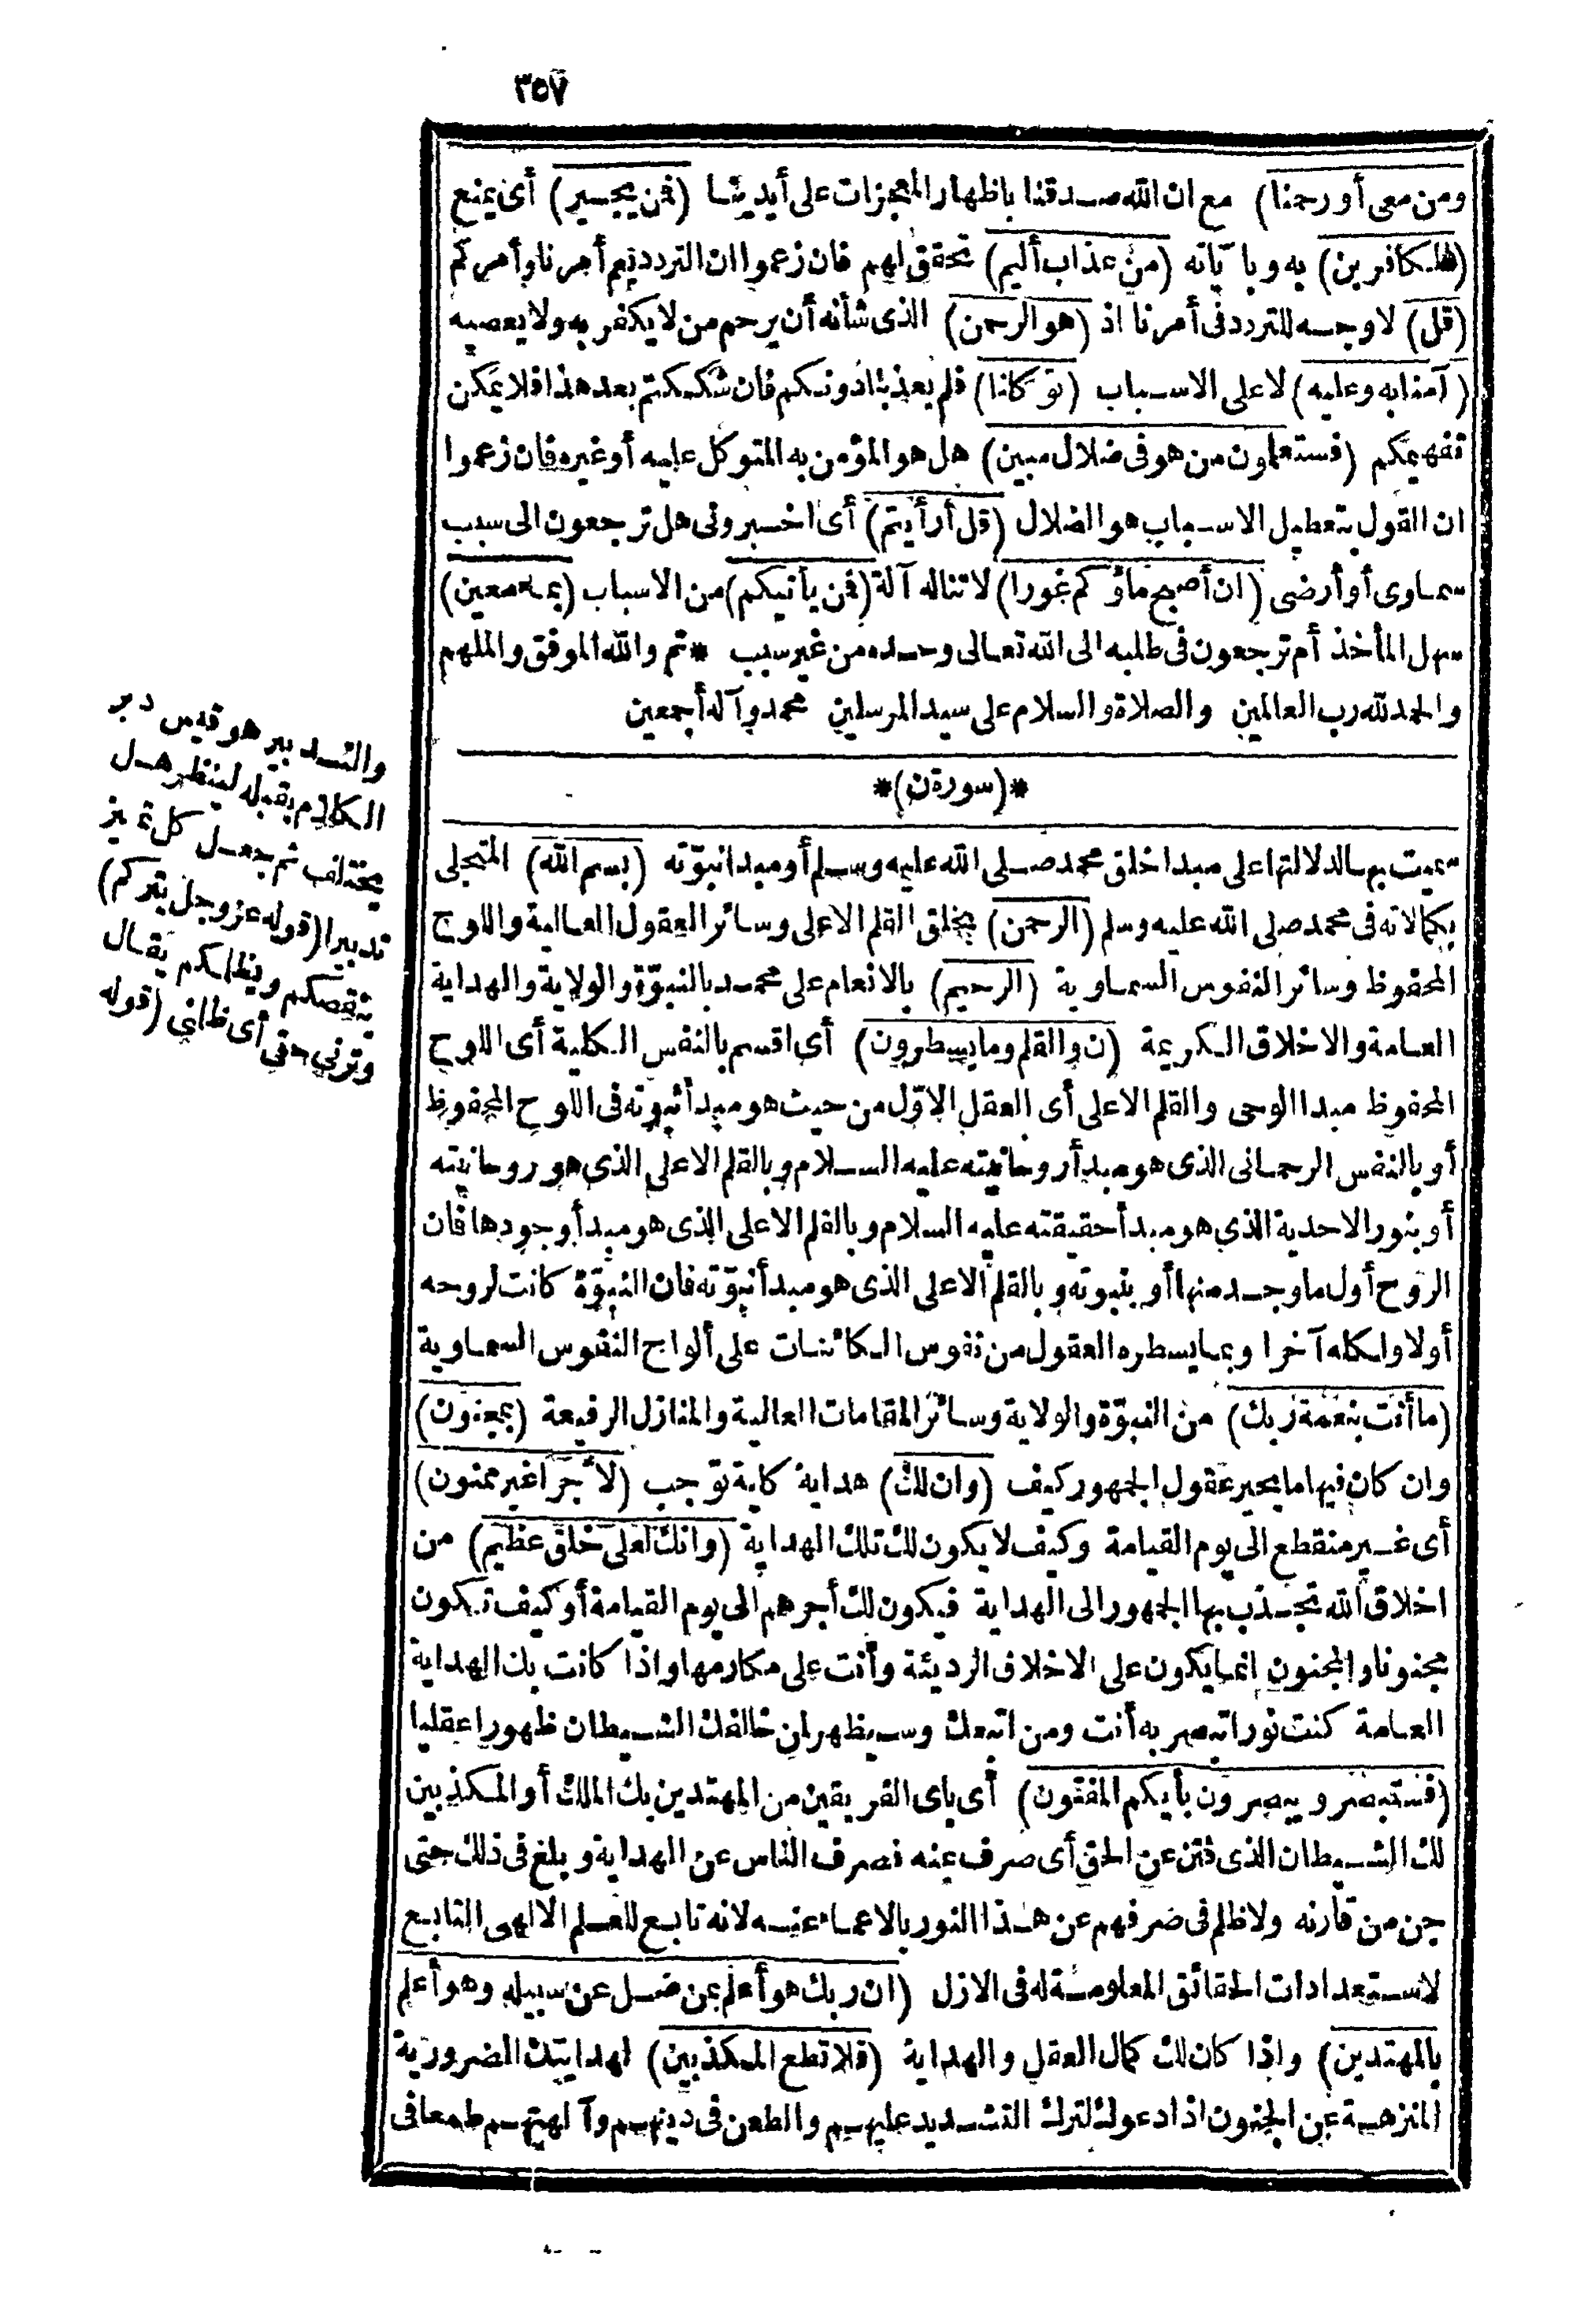 ٣٥٧
ومن معى أو رحمنا) مع ان الله صدقنا باظهار المعجزات على أيدينا (فمن يجير) أى يمنع
(الكافرين) به وبا ياته (من عذاب أليم) تحقق لهم فان زعموا ان التردد يعم أمرنا وأمركم
(قل) لا وجه للتردد فى أمرنا اذ (هو الرحمن) الذى شأنه أن يرحم من لا يكفر به ولا يعصيه
(آمنا به وعليه) لا على الاسباب (توكلنا) فلم يعذبنا دونكم فان شككتم بعد هذا فلا يمكن
تفهيمكم (فستعلمون من هو فى ضلال مبين) هل هو المؤمن به المتوكل عليه أو غيره فان زعموا
ان القول بتعطيل الاسباب هو الضلال (قل أرأيتم) أى اخبرونى هل ترجعون الى سبب
سماوى أو أرضى (ان أصبح ماؤكم غورا) لا تناله آلة (فمن يأتيكم) من الاسباب (بماء معين)
سهل المأخذ أم ترجعون فى طلبه الى الله تعالى وحده من غير سبب * تم والله الموفق والملهم
والحمد لله رب العالمين والصلاة والسلام على سيد المرسلين محمد وآله أجمعين
*(سورة ن)*
سميت بها لدلالتها على مبدا خلق محمد صلى الله عليه وسلم أو مبدا نبوّته (بسم الله) المتجلى
بكمالاته فى محمد صلى الله عليه وسلم (الرحمن) بخلق القلم الاعلى وسائر العقول العالية واللوح
المحفوظ وسائر النفوس السماوية (الرحيم) بالانعام على محمد بالنبوّة والولاية والهداية
العامة والاخلاق الكريمة (ن والقلم وما يسطرون) أى اقسم بالنفس الكلية أى اللوح
المحفوظ مبدا الوحى والقلم الاعلى أى العقل الاوّل من حيث هو مبدأ ثبوته فى اللوح المحفوظ
أو بالنفس الرحمانى الذى هو مبدأ روحانيته عليه السلام وبالقلم الاعلى الذى هو روحانيته
أو بنور الاحدية الذى هو مبدأ حقيقته عليه السلام وبالقلم الاعلى الذى هو مبدأ وجودها فان
الروح أول ما وجد منها أو بنبوته وبالقلم الاعلى الذى هو مبدأ نبوّته فان النبوّة كانت لروحه
أولا ولكله آخرا وبما يسطره العقول من نفوس الكائنات على ألواح النفوس السماوية
(ما أنت بنعمة ربك) من النبوّة والولاية وسائر المقامات العالية والمنازل الرفيعة (بمجنون)
وان كان فيها ما يحير عقول الجمهور كيف (وان لك) هداية كلية توجب (لأجرا غير ممنون)
أى غير منقطع الى يوم القيامة وكيف لا يكون لك تلك الهداية (وانك لعلى خلق عظيم) من
اخلاق الله تجذب بها الجمهور الى الهداية فيكون لك أجرهم الى يوم القيامة أو كيف تكون
مجنونا والمجنون انما يكون على الاخلاق الرديئة وأنت على مكارمها واذا كانت بك الهداية
العامة كنت نورا تبصر به أنت ومن اتبعك وسيظهر ان خالفك الشيطان ظهورا عقليا
(فستبصر ويبصرون بأيكم المفتون) أى باى الفريقين من المهتدين بك الملك أو المكذبين
لك الشيطان الذى فتن عن الحق أى صرف عنه فصرف الناس عن الهداية وبلغ فى ذلك حتى
جن من قارنه ولا ظلم فى صرفهم عن هذا النور بالاعماء عنه لانه تابع للعلم الالهى التابع
لاستعدادات الحقائق المعلومة له فى الازل (ان ربك هو أعلم بمن ضل عن سبيله وهو أعلم
بالمهتدين) واذا كان لك كمال العقل والهداية (فلا تطع المكذبين) لهدايتك الضرورية
المنزهة عن الجنون اذا دعوك لترك التشديد عليهم والطعن فى دينهم وآلهتهم طمعا فى
والتدبير هو قيس دبر
الكلام بقبله لينظر هل
يختلف ثم جعل كل تمييز
تدبيرا (قوله عز وجل يتركم)
ينقصكم ويظلمكم يقال
وترني حقي أى ظلني (قوله